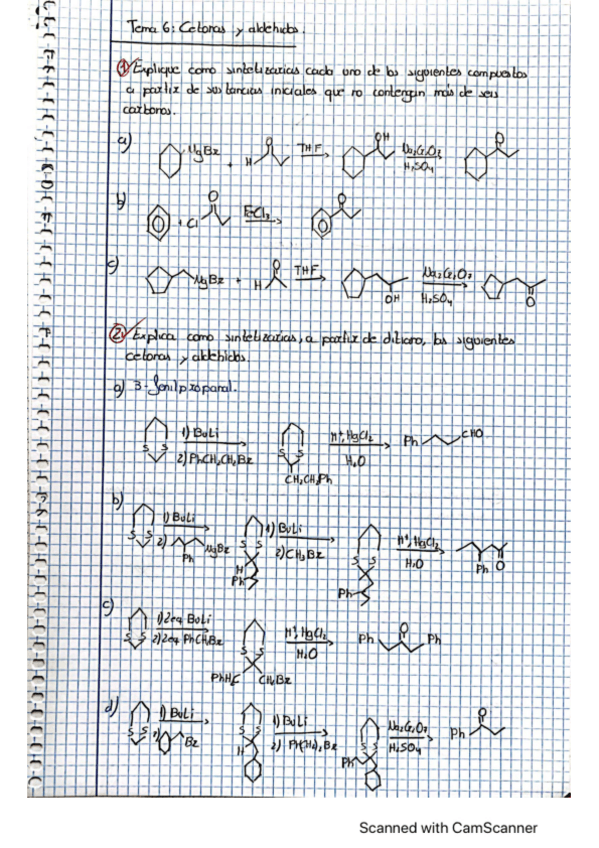 Tema 6: Cetonas y aldehidos.
① Explique como sintetizarias cada uno de los siguientes compuestos
a partir de sustancias iniciales que no contengan más de seis
carbonos.
a) MgBr + H O THF OH Na2Cr2O7 H2SO4 O
b) + Cl O FeCl3 O
c) MgBr + H O THF OH Na2Cr2O7 H2SO4 O
② Explica como sintetizarias, a partir de ditiano, las siguientes
cetonas y aldehidos.
a) 3-fenilpropanal.
S S 1) BuLi 2) PhCH2CH2Br S S CH2CH2Ph H+, HgCl2 H2O Ph CHO
b) S S 1) BuLi 2) Ph MgBr S S H Ph 1) BuLi 2) CH3Br S S Ph H+, HgCl2 H2O Ph O
c) S S 1) 2eq BuLi 2) 2eq PhCH2Br S S CH2Br H+, HgCl2 H2O Ph O Ph
d) S S 1) BuLi 2) Br S S H 1) BuLi 2) S S Ph Na2Cr2O7 H2SO4 Ph O
Scanned with CamScanner